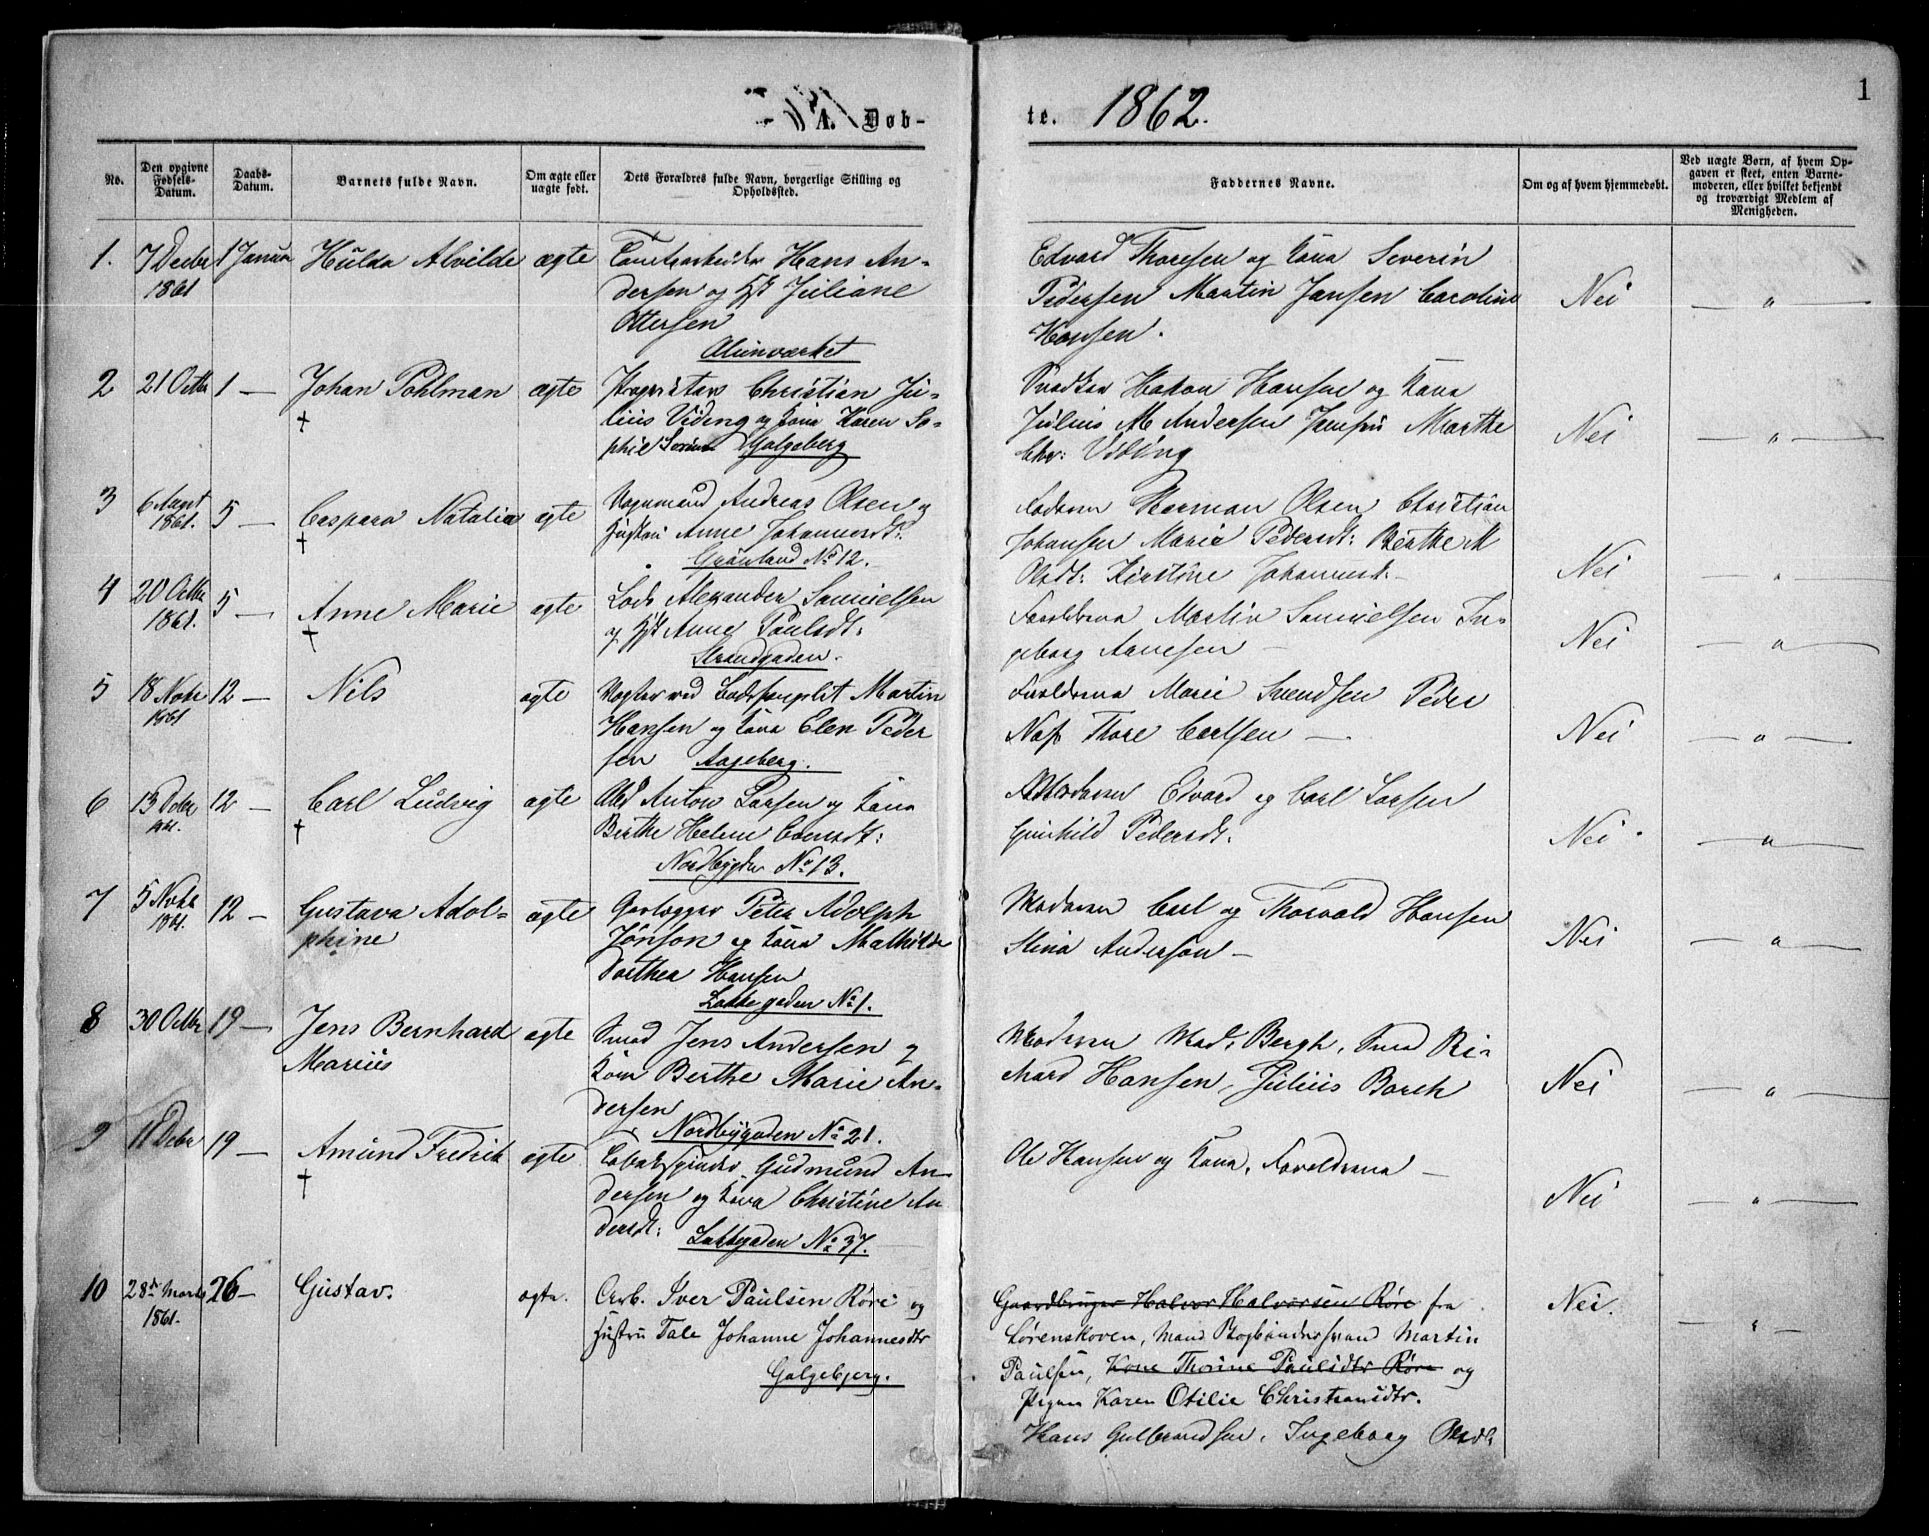 1
A. Døb-
te. 1862.
No.
Den opgivne Fødsels-Datum.
Daabs-Datum.
Barnets fulde Navn.
Om ægte eller uægte født.
Dets Forældres fulde Navn, borgerlige Stilling og Opholdssted.
Faddernes Navne.
Om og af hvem hjemmedøbt.
Ved uægte Børn, af hvem Op-
gaven er skeet, enten Barne-
moderen, eller hvilket bekjendt
og troværdigt Medlem af
Menigheden.
1. 7 Decbr 1861 1 Januar Hulda Alvilde ægte
Hans An-
dersen og Hst Juliane
Ottersen
Alunværket
Edvard Thoresen og Kona Severin
Pedersen Martin Jansen Caroline
Hansen.
Nei — " —
2 21 Octbr 1 — Johan Pohlman † ægte
Proprietær Christian Ju-
lius Viding og Kona Karen So-
phie Galgeberg
Snedker Hakon Hansen og Kona
Julius M Andersen Jomfru Marthe
Chr: Viding
Nei — " —
3 6 Augst 1861. 5 — Caspara Natalia † ægte
Vognmand Andreas Olsen og
Hustru Anne Johannesdt:
Grønland No 12.
Faderen Herman Olsen Christian
Johansen Marie Pedersdt: Berthe M
Olsdt: Kirstine Johannesdt: —
Nei — " —
4 20 Octbr 1861. 5 — Anne Marie † ægte
Lods Alexander Samuelsen
og Hst Anne Paulsdt:
Strandgaden.
Forældrene Martin Samuelsen In-
geborg Arnesen —
Nei — " —
5 18 Novbr 1861 12 — Nils ægte
Vogter ved Martin
Hansen og Kona Elen Peder
sen Aageberg.
Forældrene Marie Svendsen Peder
Næss Thore Carlsen —
Nei — " —
6 13 Debr 1861. 12 — Carl Ludvig † ægte
Arbd Anton Larsen og Kona
Berthe Helene
Nordbygden No 13.
Edvard og Carl Larsen
Gunhild Pedersdt.
Nei — " —
7 5 Novbr 1861. 12 — Gustava Adol-
phine ægte
Peter Adolph
Jönson og Kona Mathilde
Dorthea Hansen
Lakkegaden No 1.
Moderen Carl og Thorvald Hansen
Stina Anderson —
Nei — " —
8 30 Octbr 19 — Jens Bernhard
Marius ægte
Smed Jens Andersen og
Kone Berthe Marie An-
dersen
Nordbygaden No 21.
Moderen Mad. Bergh, Smed Ri-
khard Hansen, Julius Borch
Nei — " —
9 11 Debr 19 — Amund Fredrik † ægte
Tobaksspinder Gudmund An-
dersen og Kona Christine An
dersdt:
Lakkegaden No 37.
Ole Hansen og Kona, Forældrene —
Nei — " —
10 28de Marts 1861. 26 — Gustav. ægte.
Arb. Iver Paulsen Røre og
Hustru Tale Johanne Johannesdtr
Galgebjerg.
Gaardbruger Halvor Halvorsen Røre fra
Lørenskoven, Mand Bogbindersvend Martin
Paulsen, Kone Thorine Paulsdtr Røre og
Pigen Karen Otilie Christiansdtr.
Hans Gulbrandsen, Ingeborg Olsdt.
Nei. — " —